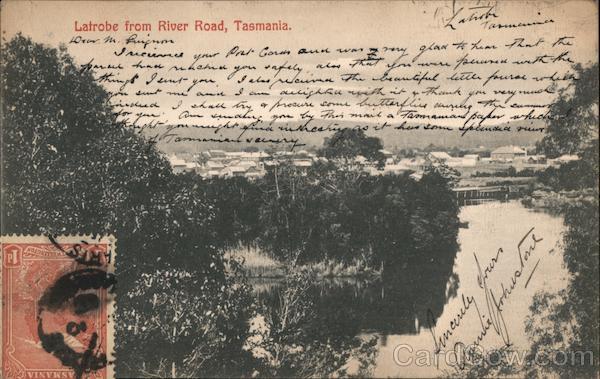 Latrobe from River Road, Tasmania.
Latrobe
Tasmania
Dear M.
I received your Post Cards and was very glad to hear that the
parcel had reached you safely, also that you were pleased with the
things I sent you. I also received the beautiful little purse which
you sent me and I am delighted with it & thank you very much
indeed I shall try & procure some butterflies during the summer
for you. Am sending you by this mail a Tasmanian paper which I
thought you might find interesting as it has some splendid views
of Tasmanian scenery.
Sincerely yours
Johnston
TASMANIA
CardCow.com